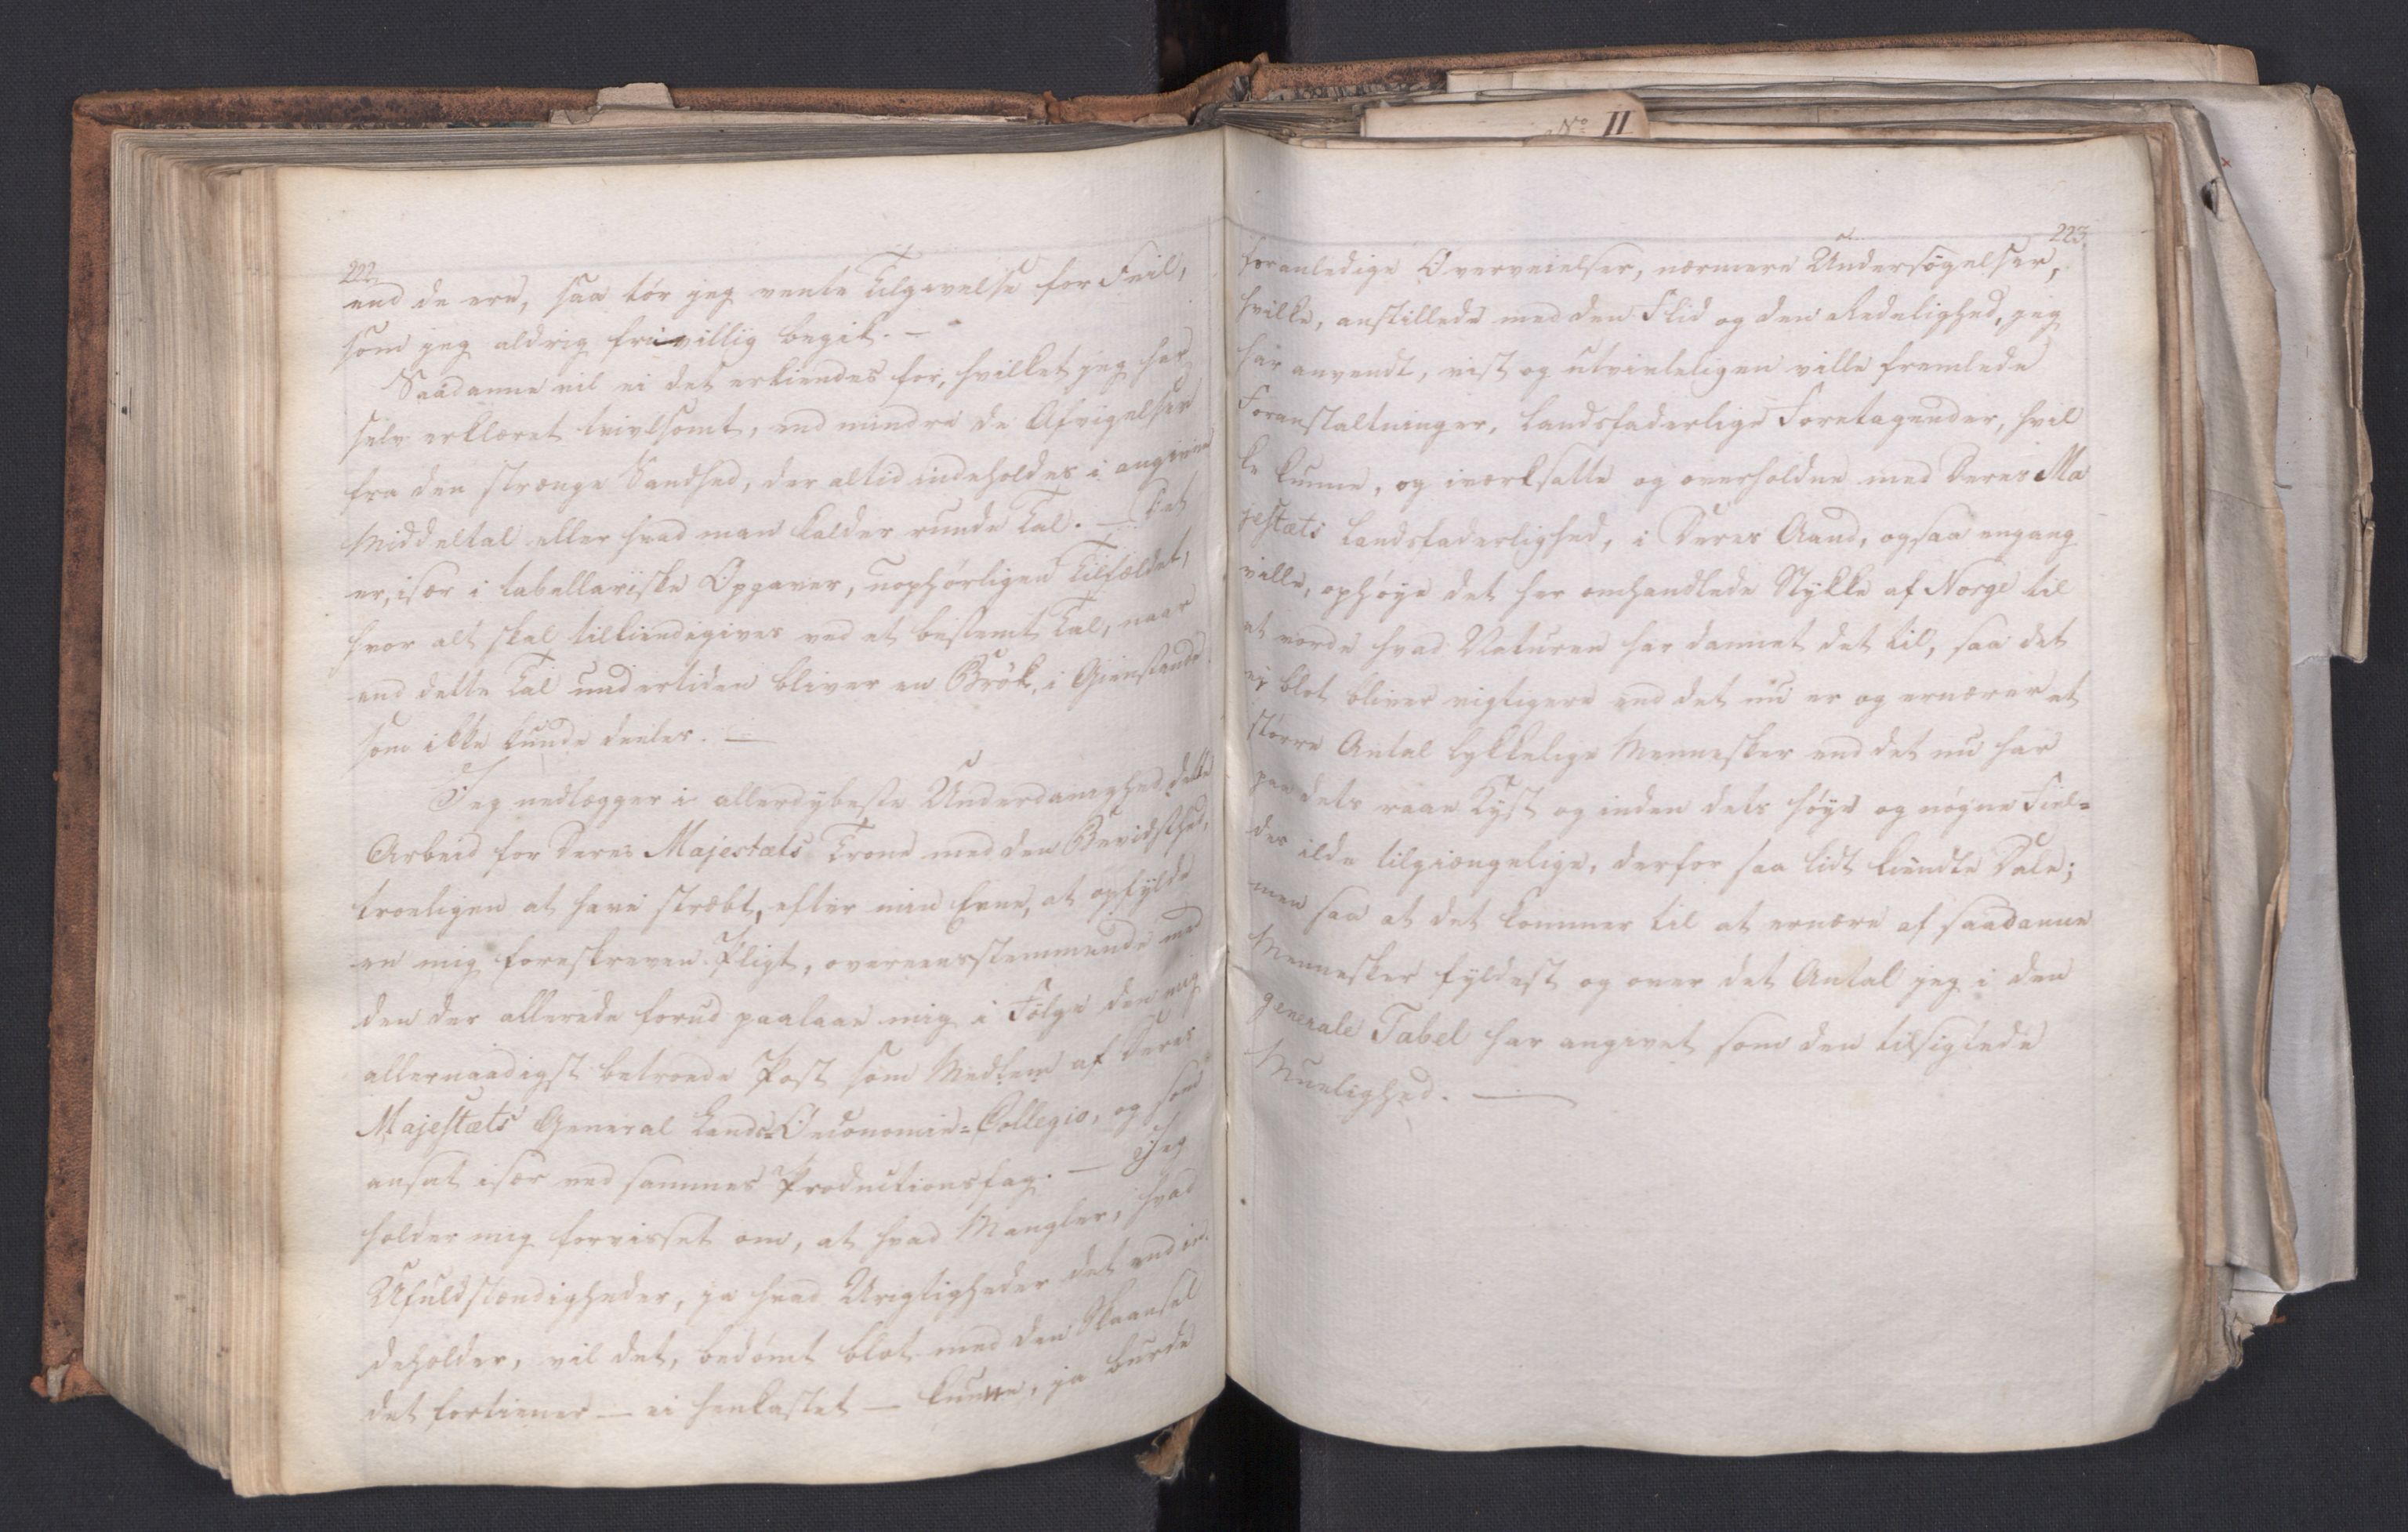 No II
222.
end de ere, saa tör jeg vente Tilgivelse for Feil,
som jeg aldrig frivillig begik. —
Saadanne vil ei det erkiendes for, hvilket jeg har
selv erklæret tvivlsomt, end mindre de Afvigelser
fra den strænge Sandhed, der altid indeholdes i angivne
Middeltal eller hvad man kalder runde Tal. — Det
er, især i tabellariske Opgaver, uophörligen Tilfældet,
hvor alt skal tilkiendegives ved et bestemt Tal, naar
end dette Tal undertiden bliver en Brök, i Gienstande
som ikke kunde deeles. —
Jeg nedlægger i allerdybeste Underdanighed dette
Arbeid for Deres Majestæts Trone med den Bevidsthed,
troeligen at have stræbt, efter min Evne, at opfylde
en mig foreskreven Pligt, overeensstemmende med
den der allerede forud paalaae mig i Fölge den mig
allernaadigst betroede Post som Medlem af Deres
Majestæts General Land-Oeconomie-Collegio, og som
ansat især ved sammes Productionsfag. — Jeg
holder mig forvisset om, at hvad Mangler, hvad
Ufuldstændigheder, ja hvad Urigtigheder det end in-
deholder, vil det, bedömt blot med den Skaansel
det fortiener — ei henkastet — kunne, ja burde
223.
foranledige Overveielser, nærmere Undersögelser,
hvilke, anstillede med den Flid og den Redelighed, jeg
har anvendt, vist og utvivleligen ville fremlede
Foranstaltninger, landsfaderlige Foretagender, hvil
ke kunne, og iværksatte og overholdne med Deres Ma
jestæts Landsfaderlighed, i Deres Aand, ogsaa engang
ville, ophöye det her omhandlede Stykke af Norge til
at vorde hvad Naturen har dannet det til, saa det
ej blot bliver vigtigere end det nu er og ernærer et
större Antal lykkelige Mennesker end det nu har
paa dets raae Kyst og inden dets höye og nögne Fiel-
des ilde tilgiængelige, derfor saa lidt kiendte Dale;
men saa at det kommer til at ernære af saadanne
Mennesker fyldest og over det Antal jeg i den
generale Tabel har angivet som den tilsigtede
Muelighed. —